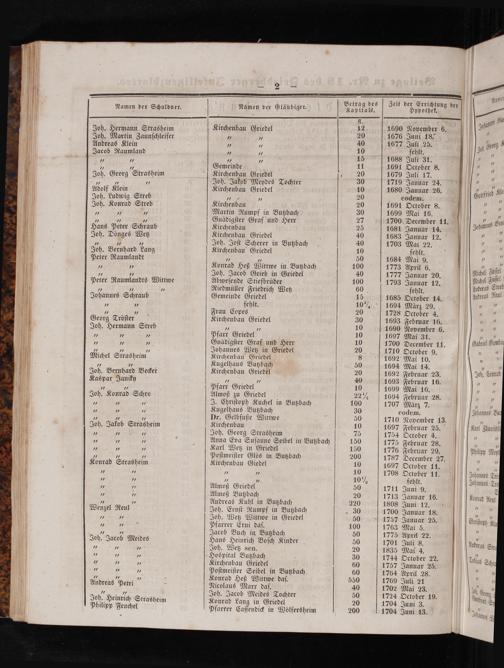 — 2 —
Namen der Schuldner. Namen der Gläubiger. Betrag des Kapitals. Zeit der Errichtung der Hypothek.
fl.
Joh. Hermann Strasheim Kirchenbau Griedel 12 1690 November 6.
Joh. Martin Zaunschleifer " " 20 1676 Juni 18.
Andreas Klein " " 40 1677 Juli 25.
Jacob Raumland " " 10 fehlt.
" " " " 15 1688 Juli 31.
" " Gemeinde 11 1691 October 8.
Joh. Georg Strasheim Kirchenbau Griedel 20 1679 Juli 17.
" " " Joh. Jakob Meydes Tochter 30 1719 Januar 24.
Adolf Klein Kirchenbau Griedel 10 1680 Januar 26.
Joh. Ludwig Streb " " 20 eodem.
Joh. Konrad Streb Kirchenbau 20 1691 October 8.
" " " Martin Rumpf in Butzbach 30 1699 Mai 16.
" " " Gnädigster Graf und Herr 27 1700 December 11.
Hans Peter Schraub Kirchenbau 25 1681 Januar 14.
Joh. Dönges Wetz Kirchenbau 40 1683 Januar 12.
" " " Joh. Jost Scherer in Butzbach 40 1703 Mai 22.
Joh. Bernhard Lang Kirchenbau Griedel 10 fehlt.
Peter Raumlandt " " 50 1684 Mai 9.
" " Konrad Heß Wittwe in Butzbach 100 1773 April 6.
" " Joh. Jacob Geich in Griedel 40 1777 Januar 20.
Peter Raumlandts Wittwe Abwesende Stiefbrüder 100 1793 Januar 12.
" " " Riedmüller Friedrich Wetz fehlt.
Johannes Schraub Gemeinde Griedel 15 1685 October 14.
" " fehlt. 1694 März 29.
" " Frau Copes 20 1728 October 4.
Georg Tröller Kirchenbau Griedel 30 1693 Februar 16.
Joh. Hermann Streb " " 10 1690 November 6.
" " " Pfarr Griedel 10 1697 Mai 31.
" " " Gnädigster Graf und Herr 10 1700 December 11.
" " " Johannes Wetz in Griedel 20 1710 October 9.
Michel Strasheim Kirchenbau Griedel 8 1692 Mai 10.
" " Kugelhaus Butzbach 50 1694 Mai 14.
Joh. Bernhard Becker Kirchenbau Griedel 20 1692 Februar 23.
Kaspar Janiky " " 40 1693 Februar 16.
" " Pfarr Griedel 10 1699 Mai 16.
Joh. Konrad Schro Almoß zu Griedel 22½ 1694 Februar 28.
" " " J. Christoph Kuchel in Butzbach 100 1707 März 7.
" " " Kugelhaus Butzbach 30 eodem.
" " " Dr. Gelbfuße Wittwe 50 1710 November 13.
Joh. Jakob Strasheim Kirchenbau 10 1697 Februar 25.
" " " Joh. Georg Strasheim 75 1754 October 4.
" " " Anna Eva Susanne Seibel in Butzbach 150 1775 Februar 28.
" " " Karl Wetz in Griedel 150 1776 Februar 29.
" " " Postmeister Glös in Butzbach 200 1787 December 27.
Konrad Strasheim Kirchenbau Giedel 10 1697 October 11.
" " " " 10 1708 October 11.
" " " " 10½ fehlt.
" " Almoß Griedel 50 1711 Juni 9.
" " Almoß Butzbach 20 1713 Januar 16.
" " Andreas Kuhl in Butzbach 220 1808 Juni 12.
Wenzel Reul Joh. Ernst Rumpf in Butzbach 30 1700 Januar 18.
" " Joh. Wetz Wittwe in Griedel 50 1757 Januar 25.
" " Pfarrer Erni das. 100 1763 Mai 5.
" " Jacob Buch in Butzbach 50 1775 April 22.
Joh. Jacob Meides Hans Heinrich Bosch Kinder 50 1701 Juli 8.
" " " Joh. Wetz sen. 20 1835 Mai 4.
" " " Hospital Butzbach 30 1744 October 22.
" " " Kirchenbau Griedel 60 1757 Januar 25.
" " " Postmeister Seibel in Butzbach 60 1764 April 28.
" " " Konrad Heß Wittwe das. 550 1769 Juli 21
Andreas Petri Nicolaus Marx das. 40 1702 Mai 23.
" " Joh. Jacob Meides Tochter 50 1724 October 19.
Joh. Heinrich Strasheim Konrad Lang in Griedel 20 1704 Juni 3.
Philipp Fenchel Pfarrer Casendick in Wölfersheim 200 1704 Juni 13.